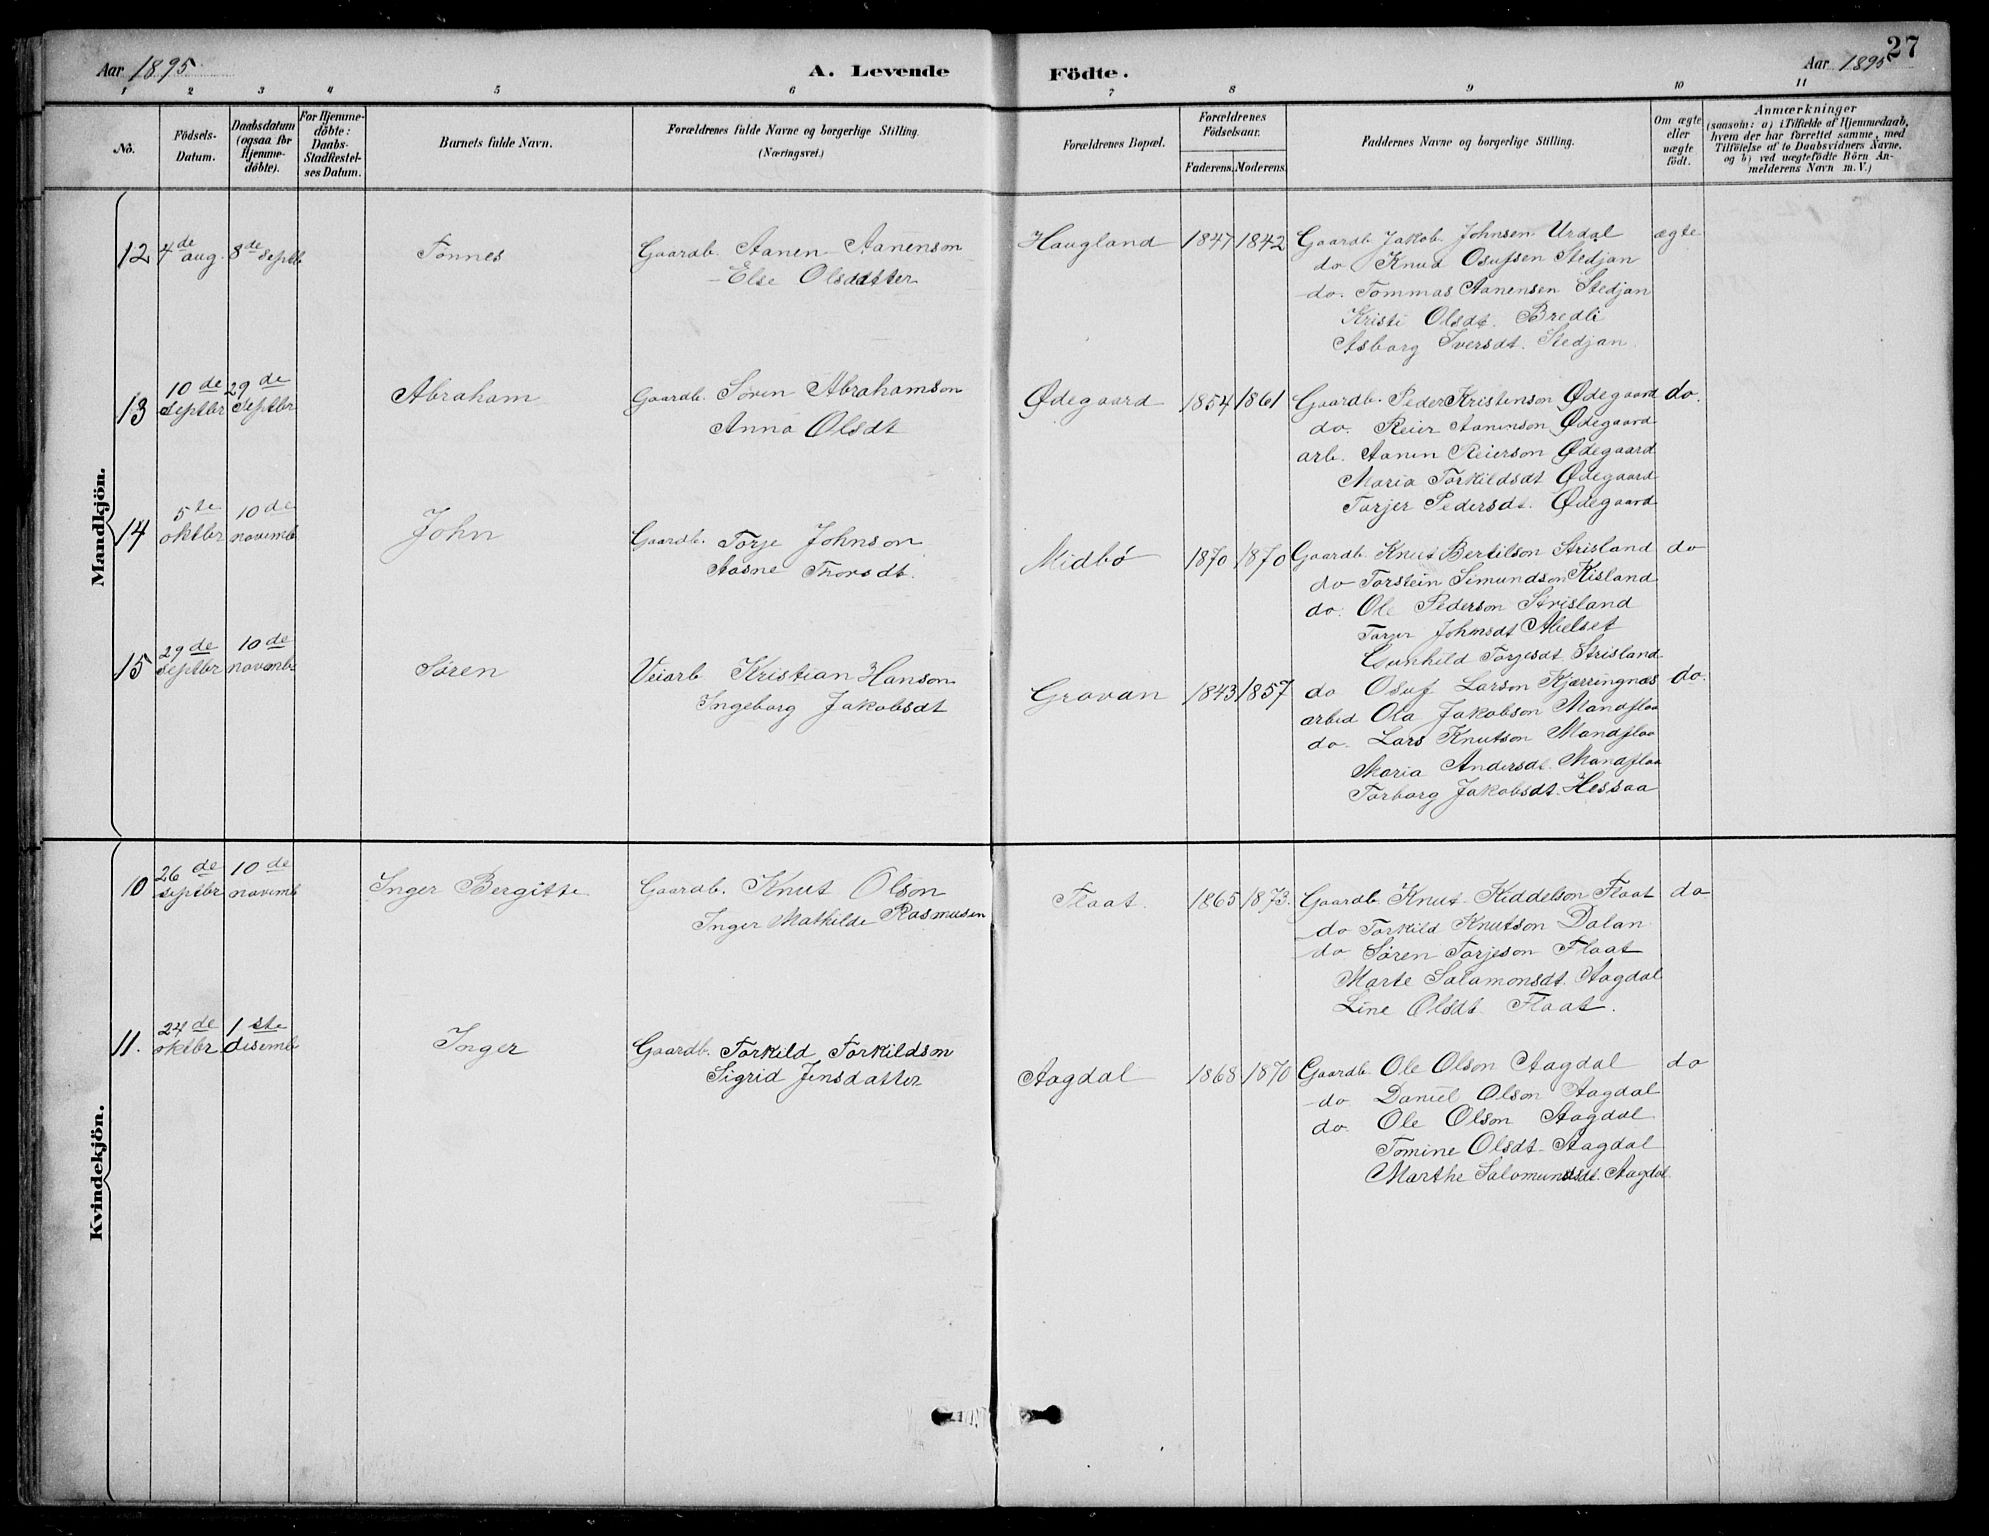 27
Aar 1895
A. Levende Födte.
Aar 1895
1 2 3 4 5 6 7 8 9 10 11
No.
Födsels-Datum.
Daabsdatum (ogsaa for Hjemme-døbte).
For Hjemme-døbte: Daabs-Stadfæstel-ses Datum.
Barnets fulde Navn.
Forældrenes fulde Navne og borgerlige Stilling.
(Næringsvei.)
Forældrenes Bopæl.
Forældrenes Födselsaar.
Faderens. Moderens.
Faddernes Navne og borgerlige Stilling.
Om ægte eller uægte födt.
Anmærkninger
(saasom: a) i Tilfælde af Hjemmedaab,
hvem der har forrettet samme, med
Tilföielse af to Daabsvidners Navne,
og b) ved uægtefödte Börn An-
melderens Navn m. V.)
Mandkjön.
12 4de aug. 8de septb Tønnes Gaardb. Aanen Aanenson
Else Olsdatter
Haugland 1847 1842 Gaardb. Jakob Johnsen Urdal ægte
do Knud Osufsen Stedjan
do. Tommas Aanensen Stedjan
Kristi Olsdt. Bredli
Asborg Iversdt. Stedjan.
13 10de septbr 29de septbr Abraham Gaardb. Søren Abrahamson
Anna Olsdt
Ødegaard 1854 1861 Gaardb. Peder Kristenson Ødegaard do.
do. Reier Aanenson Ødegaard
arb. Aanen Reierson Ødegaard
Maria Torkildsdt Ødegaard
Torjer Pedersdt. Ødegaard
14 5te oktbr 10de novemb John Gaardb. Torje Johnson
Aasne Thorsdt.
Midbø 1870 1870 Gaardb. Knut Bertilson Strisland do
do Torstein Simundson Kisland
do. Ole Pederson Strisland
Torjer Johnsdt Mielset
Gunhild Torjesdt Strisland
15 29de septbr 10de novemb Søren Veiarb Kristian Hanson
Ingeborg Jakobsdt
Grovan 1843 1857 do Osuf Larson Kjærringnes do.
arbeid Ola Jakobson Mandflaa
do. Lars Knutson Mandflaa
Maria Andersdt. Mandflaa
Torborg Jakobsdt. Hessaa
Kvindekjön.
10 26de septbr 10de novemb Inger Bergitte Gaardb. Knut Olson
Inger Mathilde Rasmusen
Flaat. 1865 1873. Gaardb. Knut Kiddelson Flaat do
do Torkild Knutson Dalan
do Søren Torjeson Flaat
Marte Salamonsdt. Aagdal
Line Olsdt Flaat.
11. 24de oktbr. 1ste disemb Inger Gaardb. Torkild Torkildson
Sigrid Jensdatter
Aagdal 1868 1870 Gaardb. Ole Olson Aagdal do
do Daniel Olson Aagdal
do. Ole Olson Aagdal
Tomine Olsdt. Aagdal
Marthe Salomunsdt. Aagdal